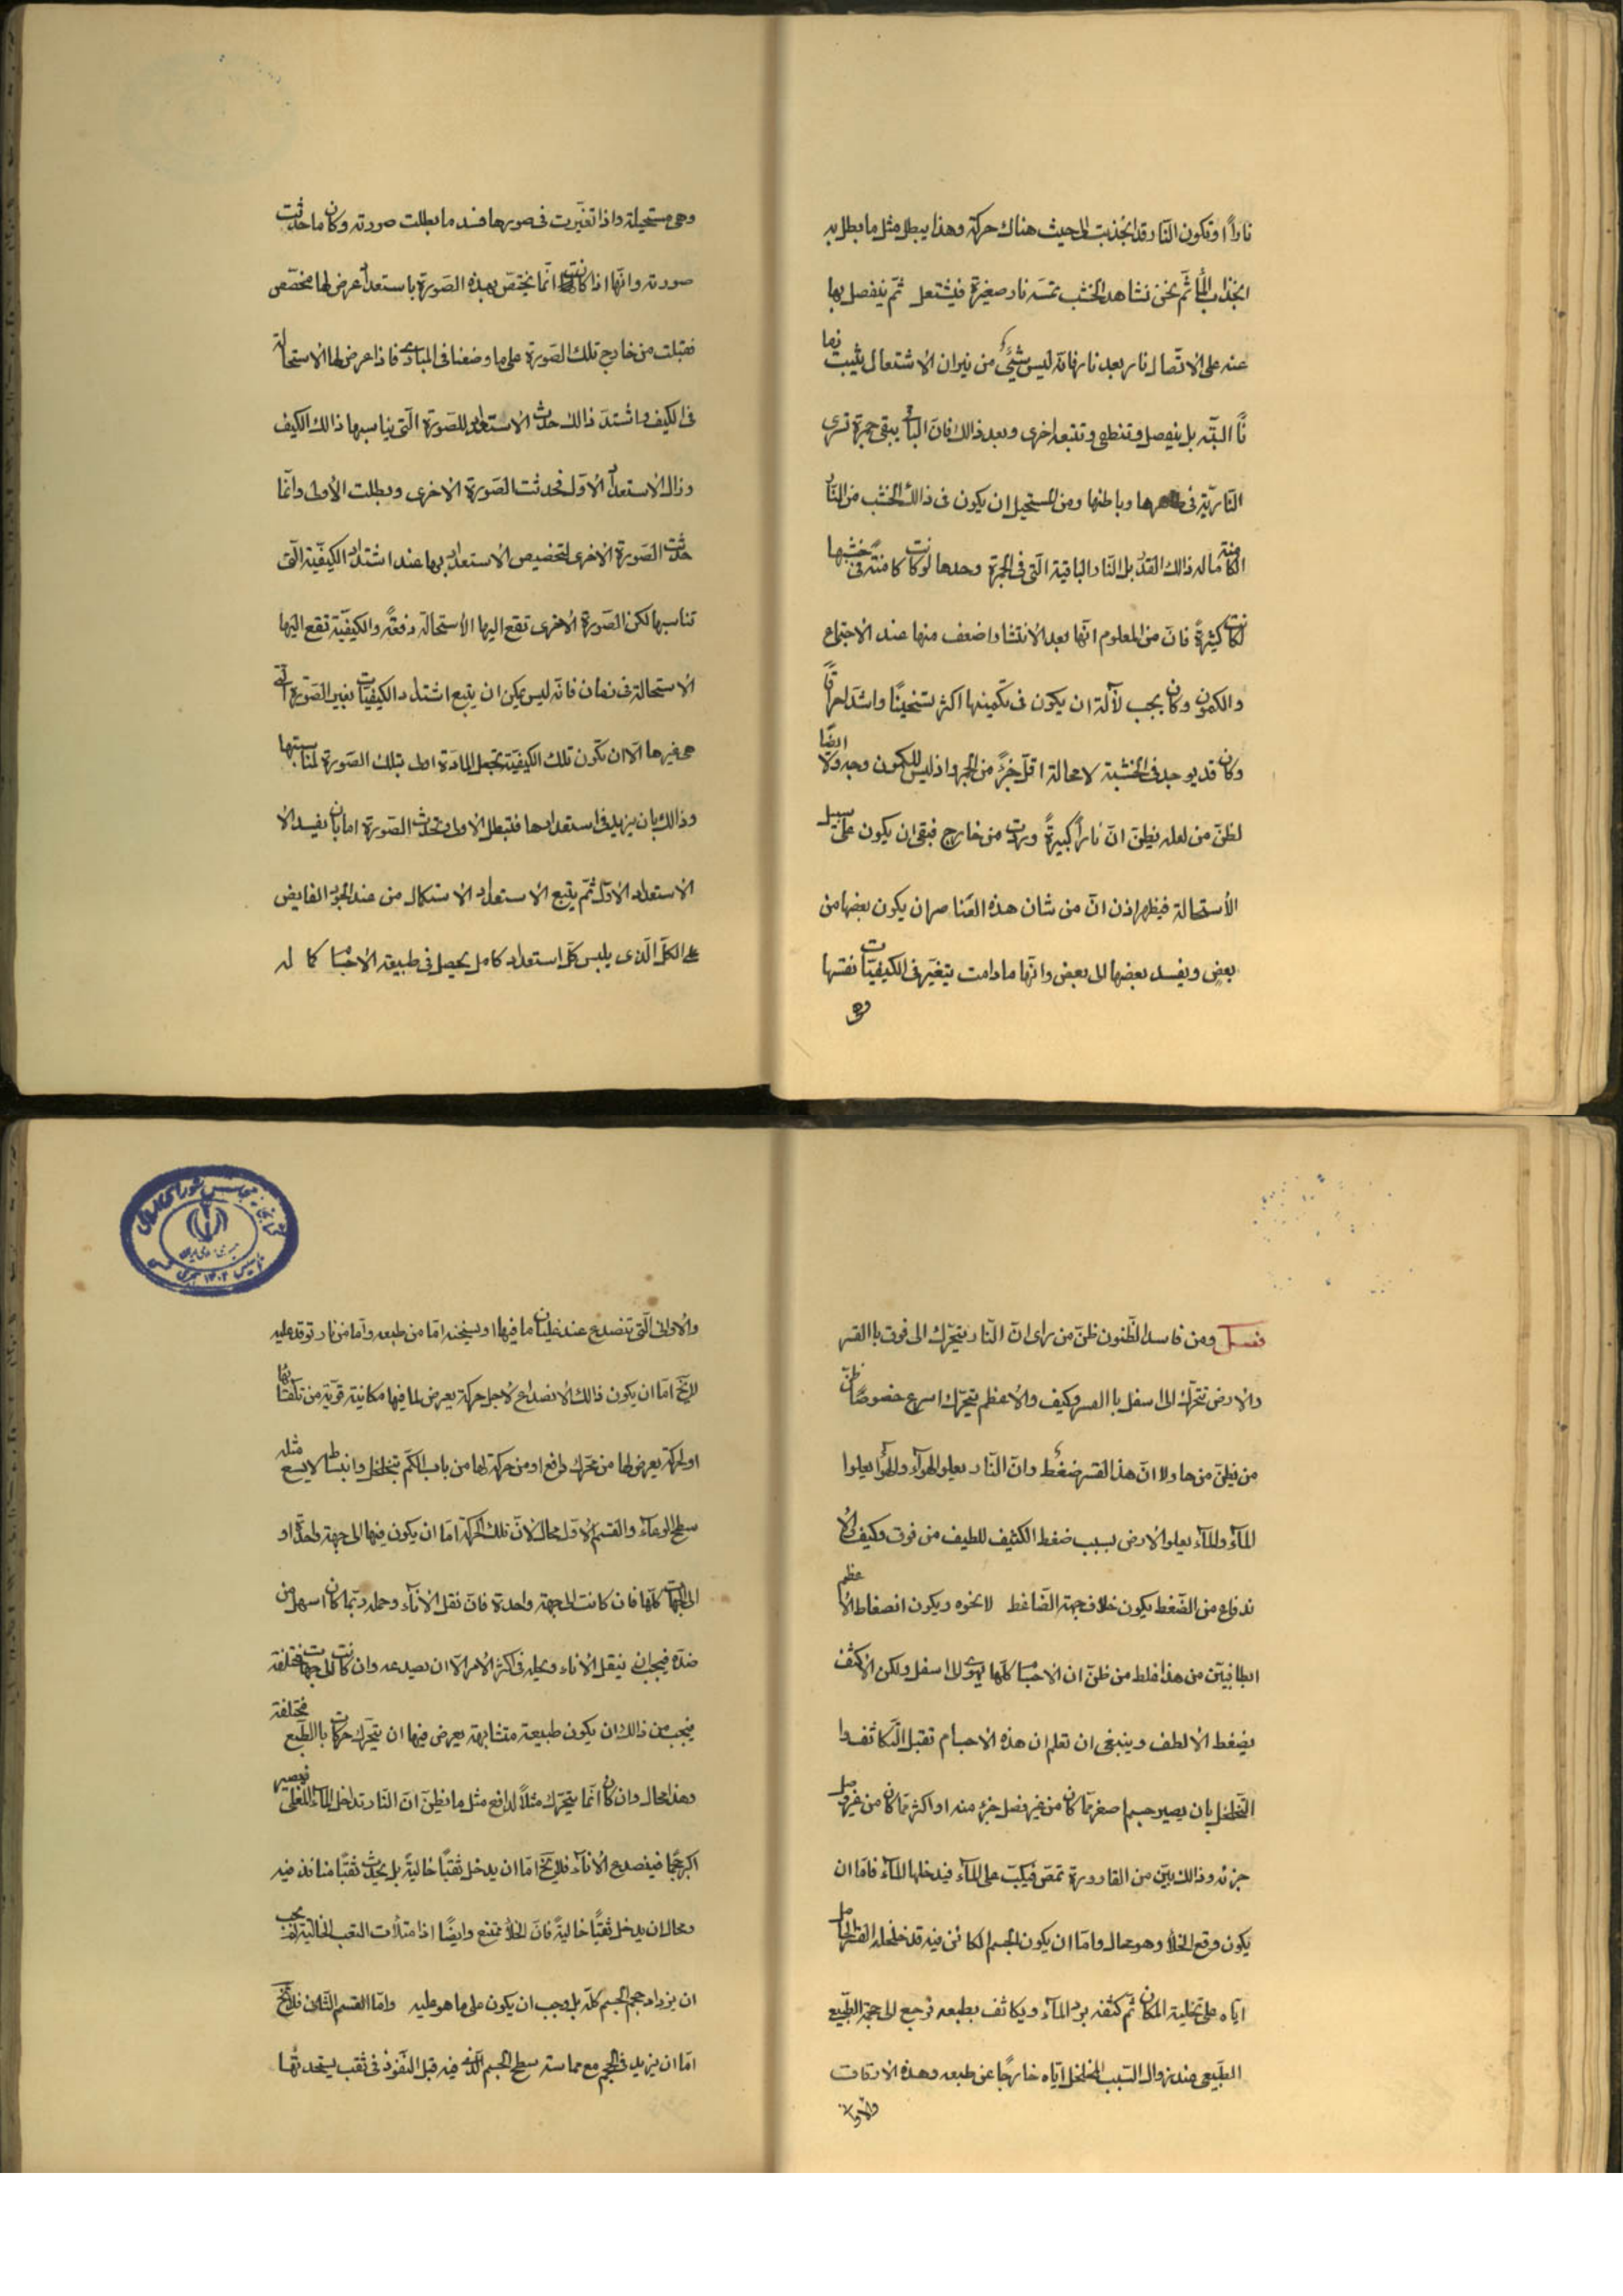 ناراً او تكون النار قد انجذبت الى حيث هناك حركة وهذا يبطل مثل ما بطل به
انجذاب الماء ثم نحن نشاهد الخشب تمسه نار صغيرة فيشتعل ثم ينفصل بها
عنه على الاتصال نار بعد نار فانه ليس شيئ من نيران الاشتعال يثبت زما
نًا البتة بل ينفصل وتنطفى وتتبعه اخرى وبعد ذالك فان الباقى يبقى جمرة ترى
النارية فى ظاهرها وباطنها ومن المستحيل ان يكون فى ذالك الخشب من النار
الكامنة ماله ذالك القدر بل النار الباقية التى فى الجمرة وحدها لو كانت كامنة فى خشبها
لكانت كثيرةً فان من المعلوم انها بعد الانتشار اضعف منها عند الاجتماع
والكمون وكان يجب لا محالة ان يكون فى تكمينها اكثر تسخينًا واشد احراقًا
وكان قد يوجد فى الخشبة لا محالة اقل جزءً من الجمر واذ ليس للكمون وجه ولا ايضًا
لظن من لعله يظن ان ناراً كبيرةً وردت من خارج فبقى ان يكون على سبيل
الأستحالة فيظهر اذن ان من شان هذه العناصر ان يكون بعضها من
بعض ويفسد بعضها الى بعض وانها مادامت يتغير فى الكيفيات نفسها
وهى
وهى مستحيلة واذا تغيرت فى صورها فسد ما بطلت صورته وكان ما حدثت
صورته وانها اذا كانت انما يختص بهذه الصورة باستعداد عرض لها مخصص
فقبلت من خارج تلك الصورة على ما وصفنا فى المبادى فاذا عرض لها الاستحالة
فى الكيف واشتد ذالك حدث الاستعداد للصورة التى يناسبها ذالك الكيف
وزال الاستعداد الاول فحدثت الصورة الاخرى وبطلت الأولى وانما
حدثت الصورة الاخرى لتخصيص الاستعداد بها عند اشتداد الكيفية التى
تناسبها لكن الصورة الاخرى تقع اليها الأستحالة دفعةً والكيفية تقع اليها
الاستحالة فى زمان فانه ليس يمكن ان يتبع اشتداد الكيفيات تغير الصورة التى
هى غيرها الا ان تكون تلك الكيفية تجعل المادة اولى بتلك الصورة لمناسبتها
وذالك بان يزيد فى استعدادها فتبطل الاولى وتحدث الصورة اما بان يفيد الا
الاستعداد الاول ثم يتبع الاستعداد الاستكمال من عند الجود الفايض
على الكل الذى يلبس كل استعداد كامل يحصل فى طبيعة الاجسام كما له
فصل ومن فاسد الظنون ظن من راى ان النار يتحرك الى فوق باالقسر
والارض تتحرك الى اسفل باالقسر وكيف والاعظم يتحرك اسرع خصوصًا ظن
من يظن من هاولا ان هذا القسر ضغط وان النار يعلو الهوآء والهوآء يعلوا
المآء والمآء يعلو الارض بسبب ضغط الكثيف للطيف من فوق وكيف والا
ندفاع من الضغط يكون خلاف جهة الضاغط لا نحوه ويكون انضغاط الأعظم
ابطا فبين من هذا غلط من ظن ان الاجسام كلها يهوى الى اسفل ولكن الاكثف
يضغط الالطف وينبغى ان تعلم ان هذه الاجسام تقبل التكاثف وا
التخلخل بان يصير جسم اصغر مما كان من غير فصل جزء منه او اكثر مما كان من غير وصل
جزئه وذالك بين من القارورة تمص فيكب على المآء فيدخلها المآء فاما ان
يكون وقع الخلأ وهو محال واما ان يكون الجسم الكائن فيه قد خلخله القسر الحامل
اياه على تخلية المكان ثم كثفه برد المآء ويكاثف بطبعه فرجع الى حجمه الطبيعى
الطبيعى عند زوال السبب المخلخل اياه خارجًا عن طبعه وهذه الاوقات
والاوانى
والاوانى التى تنصدع عند غليان ما فيها او تسخينه اما من طبعه واما من نار توقد عليه
لا يخ اما ان يكون ذالك الانصداع لاجل حركة يعرض لما فيها مكانية قوية من تلقائها
او لحركة يعرض لها من محرك دافع او من حركة لها من باب الكم بتخلخل وانبساط لا يسع مثله
سطح الوعآء والقسم الاول محال لان تلك الحركة اما ان يكون فيها الى جهة واحدة او
الى الجهات كلها فان كانت الى جهة واحدة فان نقل الانآء وحمله ربما كان اسهل من
ضده فيجب ان ينقل الاناء ويحمله فى اكثر الامر الا ان يصدعه وان كانت الى جهات مختلفة
فيجب من ذالك ان يكون طبيعة متشابهة يعرض فيها ان يتحرك حركات باالطبع مختلفة
وهذا محال وان كان انما يتحرك مثلاً لدافع مثل ما يظن ان النار تداخل المآء المغلى فيصير
اكبر حجمًا فيصدع الانآء فلا يخ اما ان يدخل ثقبًا خاليةً بل يحدث ثقبًا منافذ فيه
ومحال ان يدخل ثقبًا خاليةً فان الخلأ ممتنع وايضًا اذا امتلأت الثقب الخالية لم يجب
ان يزداد حجم الجسم كله بل وجب ان يكون على ما هو عليه واما القسم الثانى فلا يخ
اما ان يزيد فى الحجم مع مماسة سطح الجسم الذى فيه قبل النفوذ فى ثقب يستحدثها